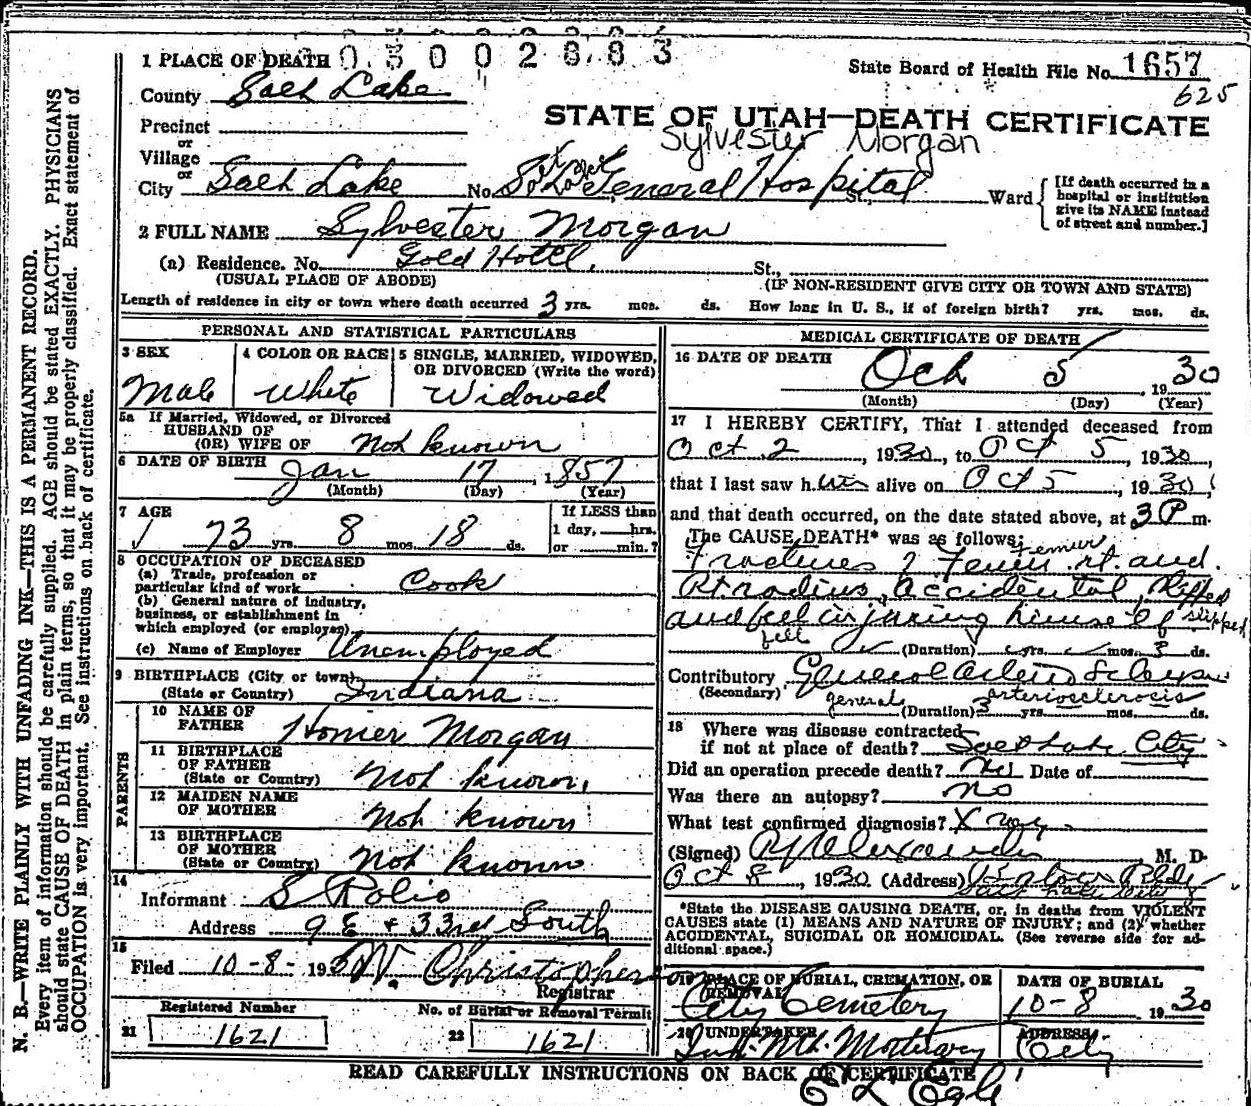 N. B.—WRITE PLAINLY WITH UNFADING INK—THIS IS A PERMANENT RECORD.
Every item of information should be carefully supplied. AGE should be stated EXACTLY. PHYSICIANS
should state CAUSE OF DEATH in plain terms, so that it may be properly classified. Exact statement of
OCCUPATION is very important. See instructions on back of certificate.
1 PLACE OF DEATH
State Board of Health File No. 1657
625
County Salt Lake
STATE OF UTAH—DEATH CERTIFICATE
Sylvester Morgan
Precinct
or
Village
or
City Salt Lake No. Salt Lake General Hospital St., Ward
[If death occurred in a
hospital or institution
give its NAME instead
of street and number.]
2 FULL NAME Sylvester Morgan
(a) Residence. No. Gold Hotel, St.,
(USUAL PLACE OF ABODE) (IF NON-RESIDENT GIVE CITY OR TOWN AND STATE)
Length of residence in city or town where death occurred 3 yrs. mos. ds. How long in U. S., if of foreign birth? yrs. mos. ds.
PERSONAL AND STATISTICAL PARTICULARS
3 SEX
Male
4 COLOR OR RACE
White
5 SINGLE, MARRIED, WIDOWED,
OR DIVORCED (Write the word)
Widowed
5a If Married, Widowed, or Divorced
HUSBAND OF
(OR) WIFE OF Not known
6 DATE OF BIRTH Jan 17, 1857
(Month) (Day) (Year)
7 AGE
73 yrs. 8 mos. 18 ds.
If LESS than
1 day, hrs.
or min.?
8 OCCUPATION OF DECEASED
(a) Trade, profession or
particular kind of work Cook
(b) General nature of industry,
business, or establishment in
which employed (or employer)
(c) Name of Employer Unemployed
9 BIRTHPLACE (City or town)
(State or Country) Indiana
PARENTS
10 NAME OF
FATHER Homer Morgan
11 BIRTHPLACE
OF FATHER
(State or Country) Not known,
12 MAIDEN NAME
OF MOTHER Not known
13 BIRTHPLACE
OF MOTHER
(State or Country) Not known
14
Informant S Rolio
Address 9 E & 33rd South
15
Filed 10-8-1930 W. Christopherson
Registrar
Registered Number
21 1621
No. of Burial or Removal Permit
22 1621
MEDICAL CERTIFICATE OF DEATH
16 DATE OF DEATH Oct 5, 1930
(Month) (Day) (Year)
17 I HEREBY CERTIFY, That I attended deceased from
Oct 2, 1930, to Oct 5, 1930,
that I last saw him alive on Oct 5, 1930,
and that death occurred, on the date stated above, at 3 P m.
The CAUSE DEATH* was as follows:
Femur
Fractures Femur rt. and
Rt radius, accidental,
and fell injuring himself slipped
fell (Duration) yrs. mos. 3 ds.
Contributory General
(Secondary) general arteriosclerosis
(Duration) 3 yrs. mos. ds.
18 Where was disease contracted
if not at place of death? Salt Lake City
Did an operation precede death? No Date of
Was there an autopsy? No
What test confirmed diagnosis? X ray
(Signed) M. D.
Oct 8, 1930 (Address)
Salt Lake City
*State the DISEASE CAUSING DEATH, or, in deaths from VIOLENT
CAUSES state (1) MEANS AND NATURE OF INJURY; and (2) whether
ACCIDENTAL, SUICIDAL OR HOMICIDAL. (See reverse side for ad-
ditional space.)
19 PLACE OF BURIAL, CREMATION, OR
REMOVAL
City Cemetery
DATE OF BURIAL
10-8 1930
20 UNDERTAKER
Mortuary
ADDRESS
City
READ CAREFULLY INSTRUCTIONS ON BACK OF CERTIFICATE